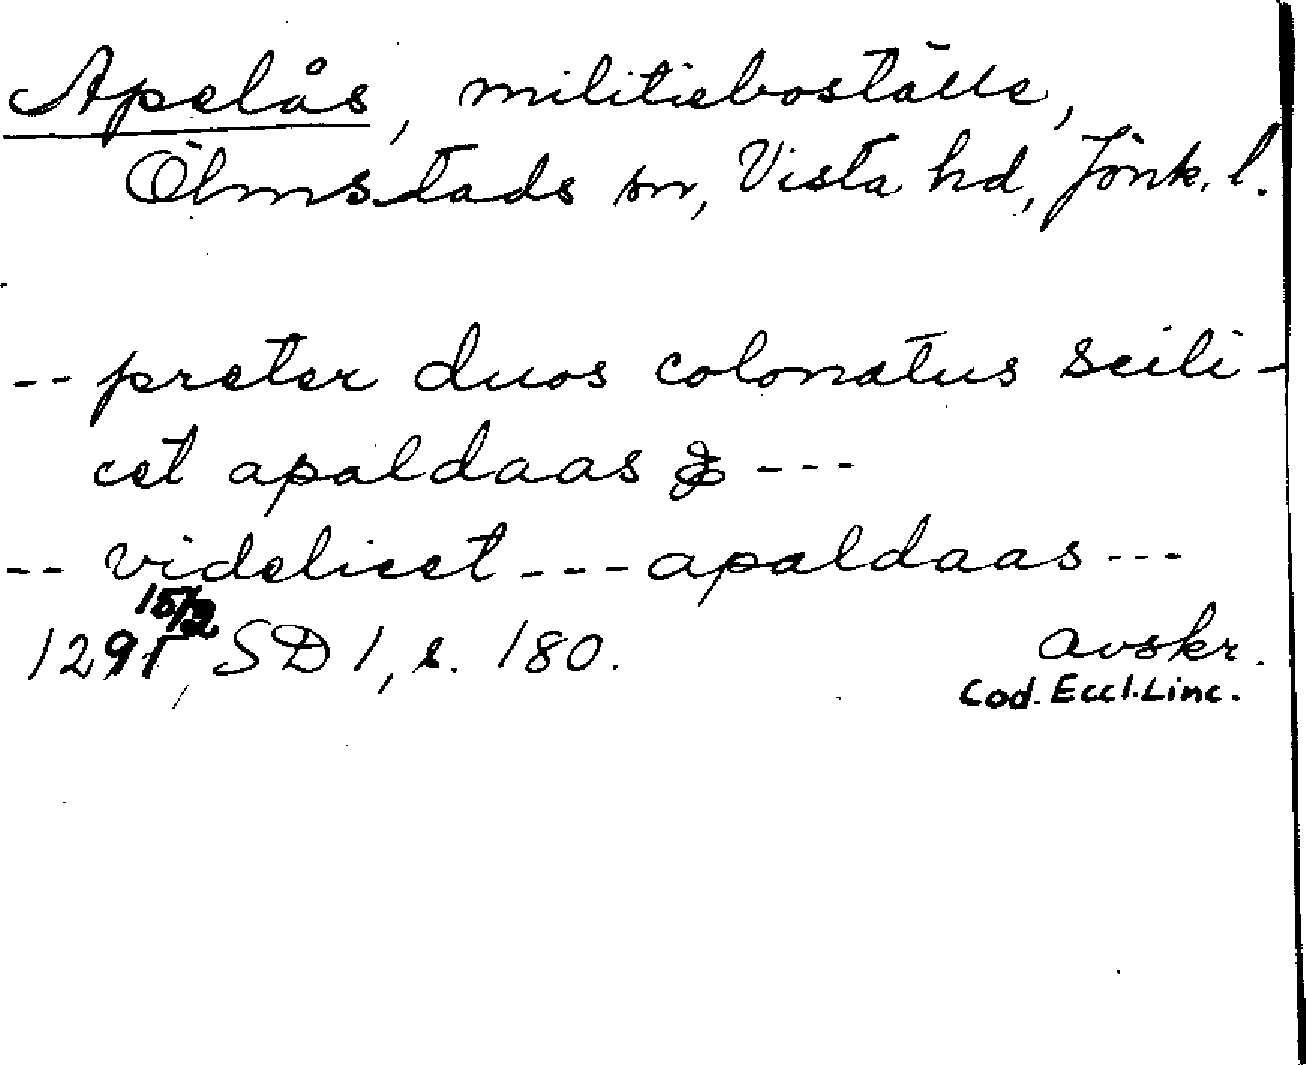 Apelås, militieboställe,
Ölmstads sn, Vista hd, Jönk. l.
-- preter duos colonatus scili-
cet apaldaas & ---
-- videlicet --- apaldaas ---
1291 15/2, SD 1, s. 180. avskr.
Cod. Eccl. Linc.